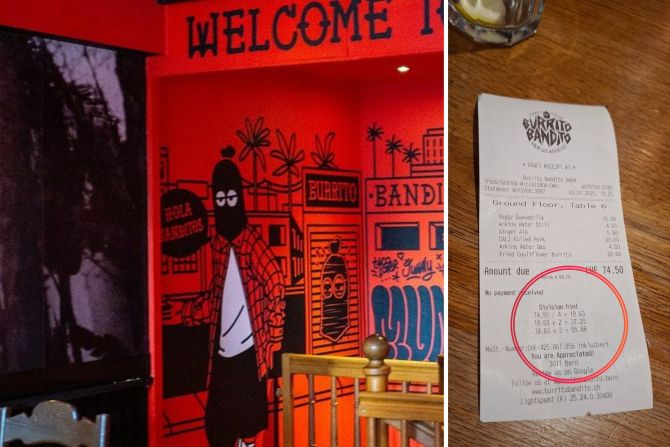 WELCOME
HOLA
BANDITOS
BURRITO
BANDI
BURRITO
BANDITO
* DRAFT RECEIPT #1 *
Burrito Bandito GmbH
Ground Floor, Table 6
Veggy Quesadilla 15.00
Arkina Water Still 4.50
Ginger Ale 5.50
CALI Pulled Pork 23.00
Arkina Water Gas 4.50
Fried Cauliflower Burrito 22.00
Amount due CHF 74.50
No payment received
Division hint
74.50 / 4 = 18.63
18.63 x 2 = 37.25
18.63 x 3 = 55.88
You are Appreciated!
3011 Bern
us on Google
Follow us
www.burritobandito.ch
Lightspeed (K) 25.24.0.30400